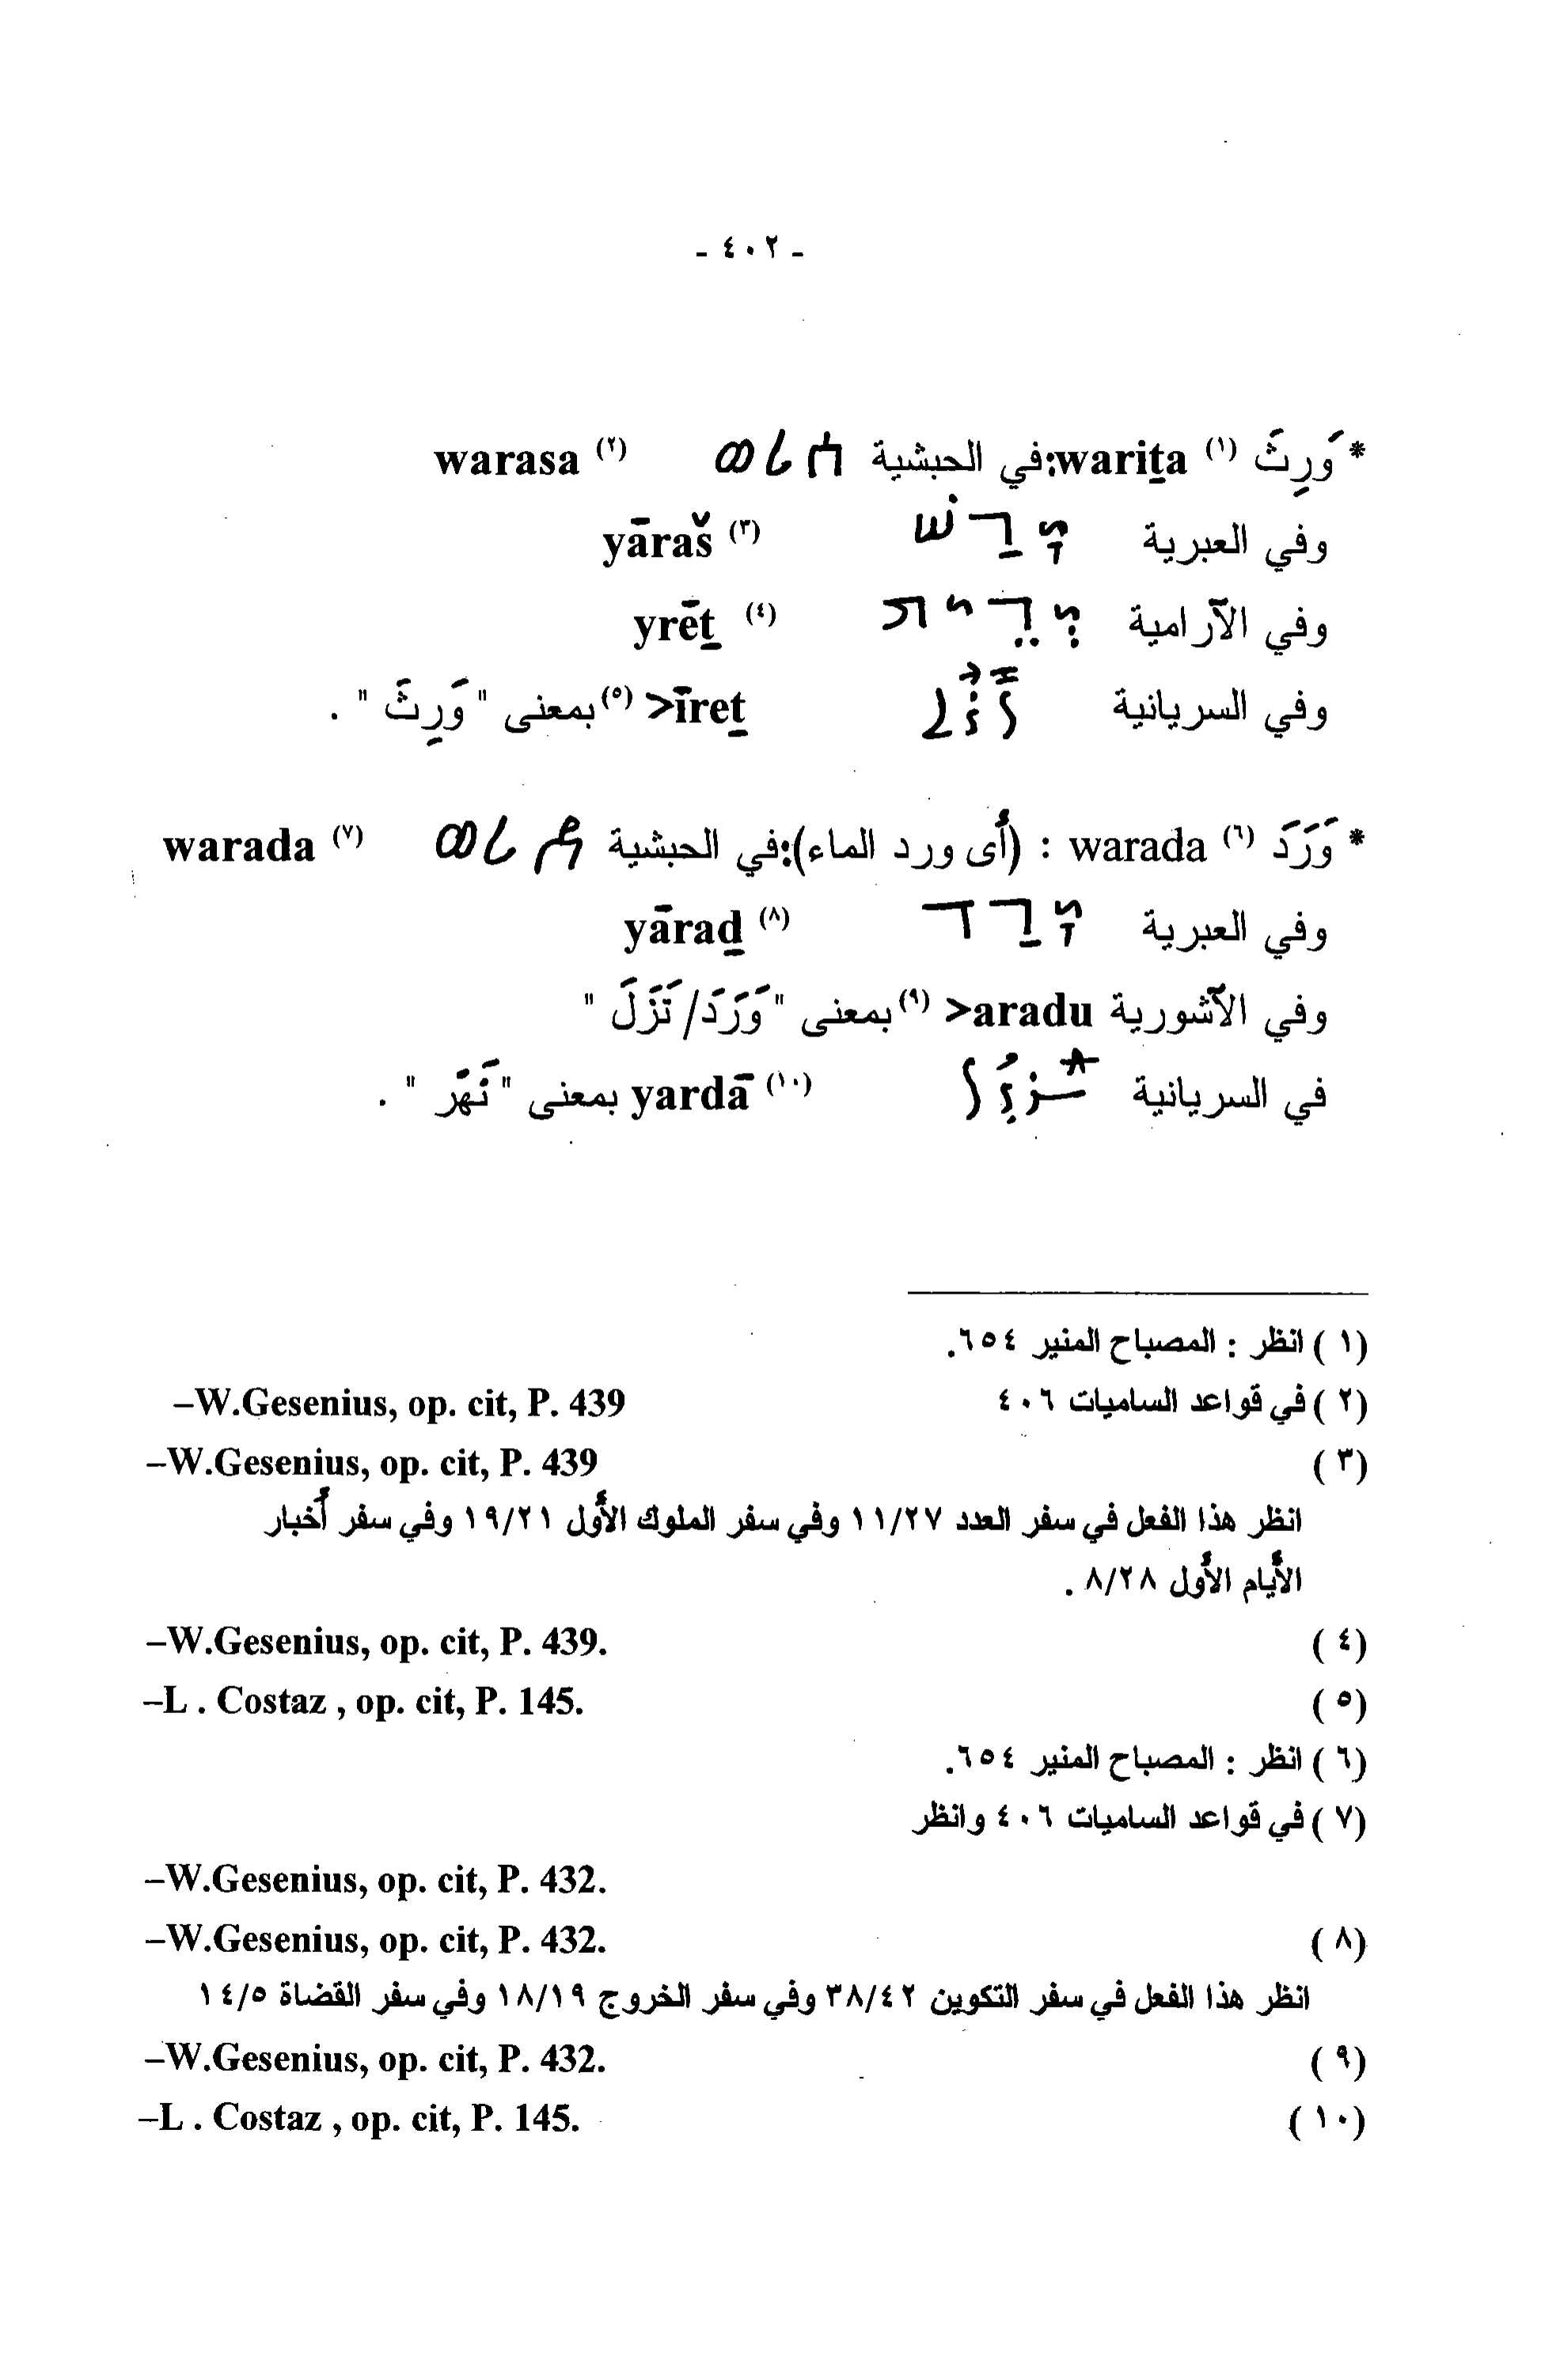 - ٤٠٢ -
* وَرِثَ (١) wariṯa: في الحبشية ወረሰ warasa (٢)
وفي العبرية יָרַשׁ yāraš (٣)
وفي الآرامية יְרֵית yrēṯ (٤)
وفي السريانية >īreṯ (٥) بمعنى "وَرِثَ" .
* وَرَدَ (٦) warada : (أى ورد الماء): في الحبشية ወረደ warada (٧)
وفي العبرية יָרַד yāraḏ (٨)
وفي الآشورية >aradu (٩) بمعنى "وَرَدَ/نَزَلَ"
في السريانية yardā (١٠) بمعنى "نَهَر" .
(١) انظر : المصباح المنير ٦٥٤.
(٢) في قواعد الساميات ٤٠٦ –W.Gesenius, op. cit, P. 439
(٣) –W.Gesenius, op. cit, P. 439
انظر هذا الفعل في سفر العدد ١١/٢٧ وفي سفر الملوك الأول ١٩/٢١ وفي سفر أخبار
الأيام الأول ٨/٢٨ .
(٤) –W.Gesenius, op. cit, P. 439.
(٥) –L . Costaz , op. cit, P. 145.
(٦) انظر : المصباح المنير ٦٥٤.
(٧) في قواعد الساميات ٤٠٦ وانظر
–W.Gesenius, op. cit, P. 432.
(٨) –W.Gesenius, op. cit, P. 432.
انظر هذا الفعل في سفر التكوين ٣٨/٤٢ وفي سفر الخروج ١٨/١٩ وفي سفر القضاة ١٤/٥
(٩) –W.Gesenius, op. cit, P. 432.
(١٠) –L . Costaz , op. cit, P. 145.